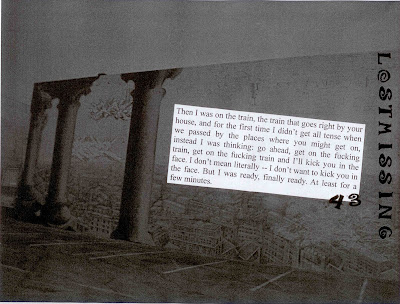 Then I was on the train, the train that goes right by your
house, and for the first time I didn't get all tense when
we passed by the places where you might get on,
instead I was thinking; go ahead, get on the fucking
train, get on the fucking train and I'll kick you in the
face. I don't mean literally -- I don't want to kick you in
the face. But I was ready, finally ready. At least for a
few minutes.
43
L@STMISSING